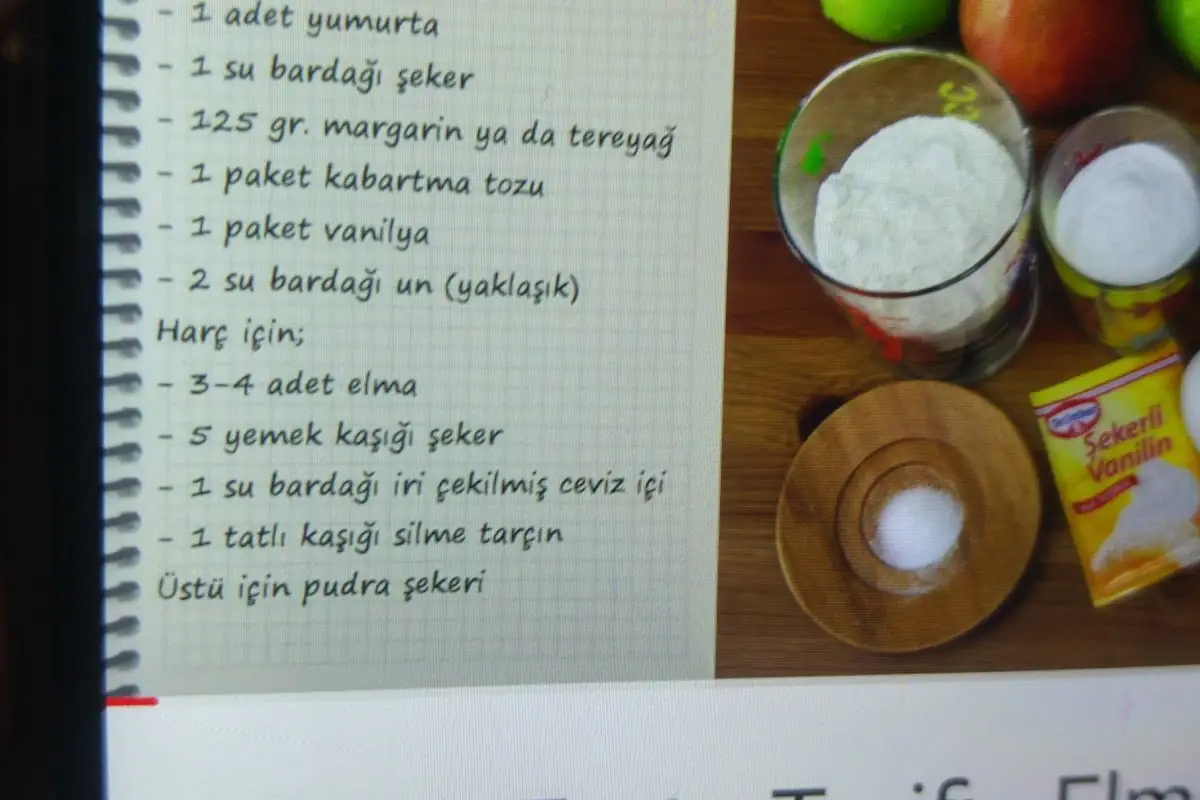 - 1 adet yumurta
- 1 su bardağı şeker
- 125 gr. margarin ya da tereyağ
- 1 paket kabartma tozu
- 1 paket vanilya
- 2 su bardağı un (yaklaşık)
Harç için;
- 3-4 adet elma
- 5 yemek kaşığı şeker
- 1 su bardağı iri çekilmiş ceviz içi
- 1 tatlı kaşığı silme tarçın
Üstü için pudra şekeri
Şekerli
Vanilin